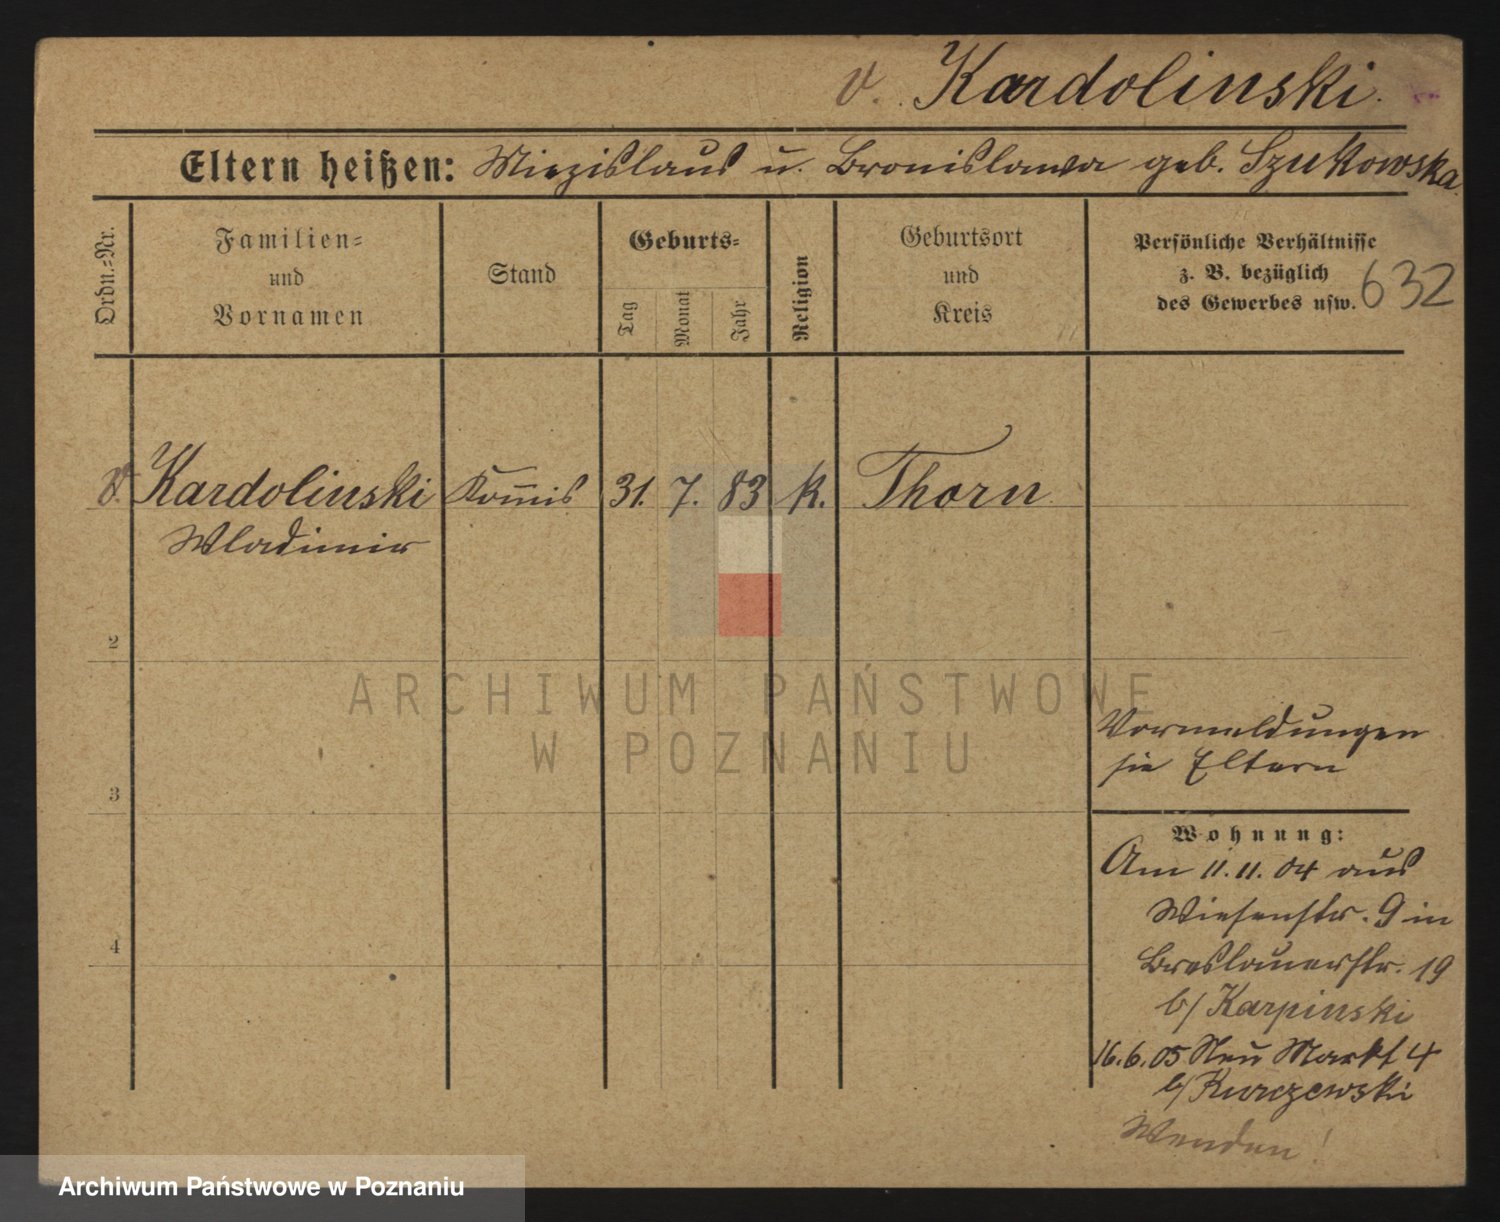 v. Kardolinski.
Eltern heißen: Miezislaus u. Bronislawa geb. Szukowska.
Ordn.-Nr.
Familien-
und
Vornamen
Stand
Geburts-
Tag
Monat
Jahr
Religion
Geburtsort
und
Kreis
Persönliche Verhältnisse
z. B. bezüglich
des Gewerbes usw.
632
v. Kardolinski Kom̅is 31. 7. 83 k. Thorn
Wladimir
2
ARCHIWUM PAŃSTWOWE
W POZNANIU
Vormeldungen
sie Eltern
3
Wohnung:
Am 11.11.04 aus
Wiesenstr. 9 in
4
Breslauerstr. 19
b/ Karpinski
16.6.05 Neu Markt 4
b/ Kurczewski
Wenden!
Archiwum Państwowe w Poznaniu